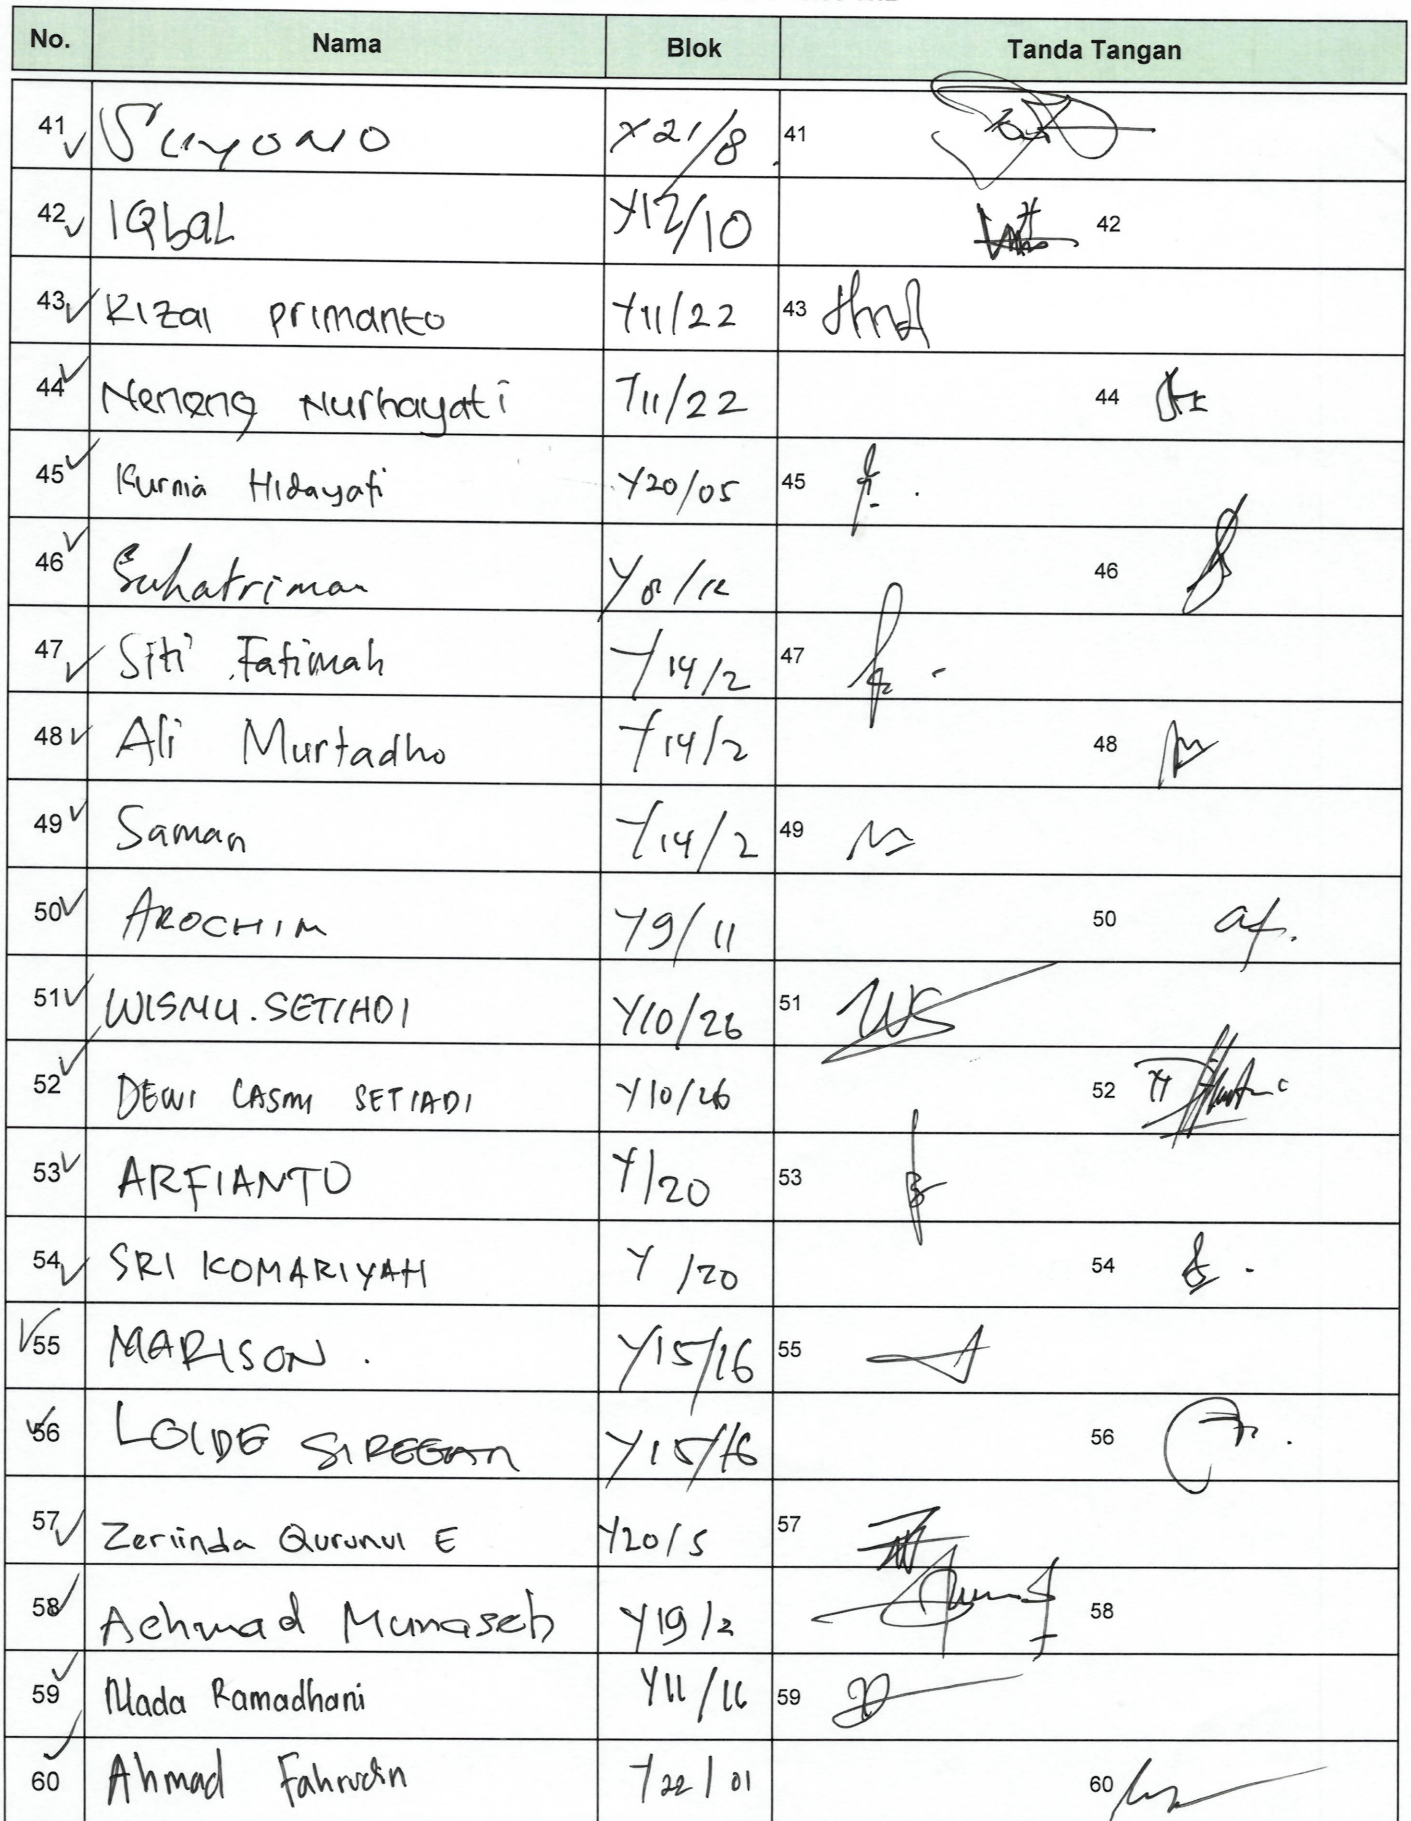 No. Nama Blok Tanda Tangan
41 Suyono Y21/8 41
42 IQbaL Y12/10 42
43 Rizal primanto Y11/22 43
44 Neneng Nurhayati Y11/22 44
45 Kurnia Hidayati Y20/05 45
46 Suhatriman 46
47 Siti Fatimah Y14/2 47
48 Ali Murtadho Y14/2 48
49 Saman Y14/2 49
50 AROCHIM Y9/11 50
51 WISNU.SETIADI Y10/26 51 WS
52 DEWI CASMI SETIADI Y10/26 52
53 ARFIANTO Y/20 53
54 SRI KOMARIYAH Y /20 54
55 MARISON. Y15/16 55
56 LOIDE SIREGAR Y15/16 56
57 Zeriinda Qurunul E Y20/5 57
58 Achmad Munaseb Y19/2 58
59 Nada Ramadhani Y11/16 59
60 Ahmad Fahrudin Y22/01 60